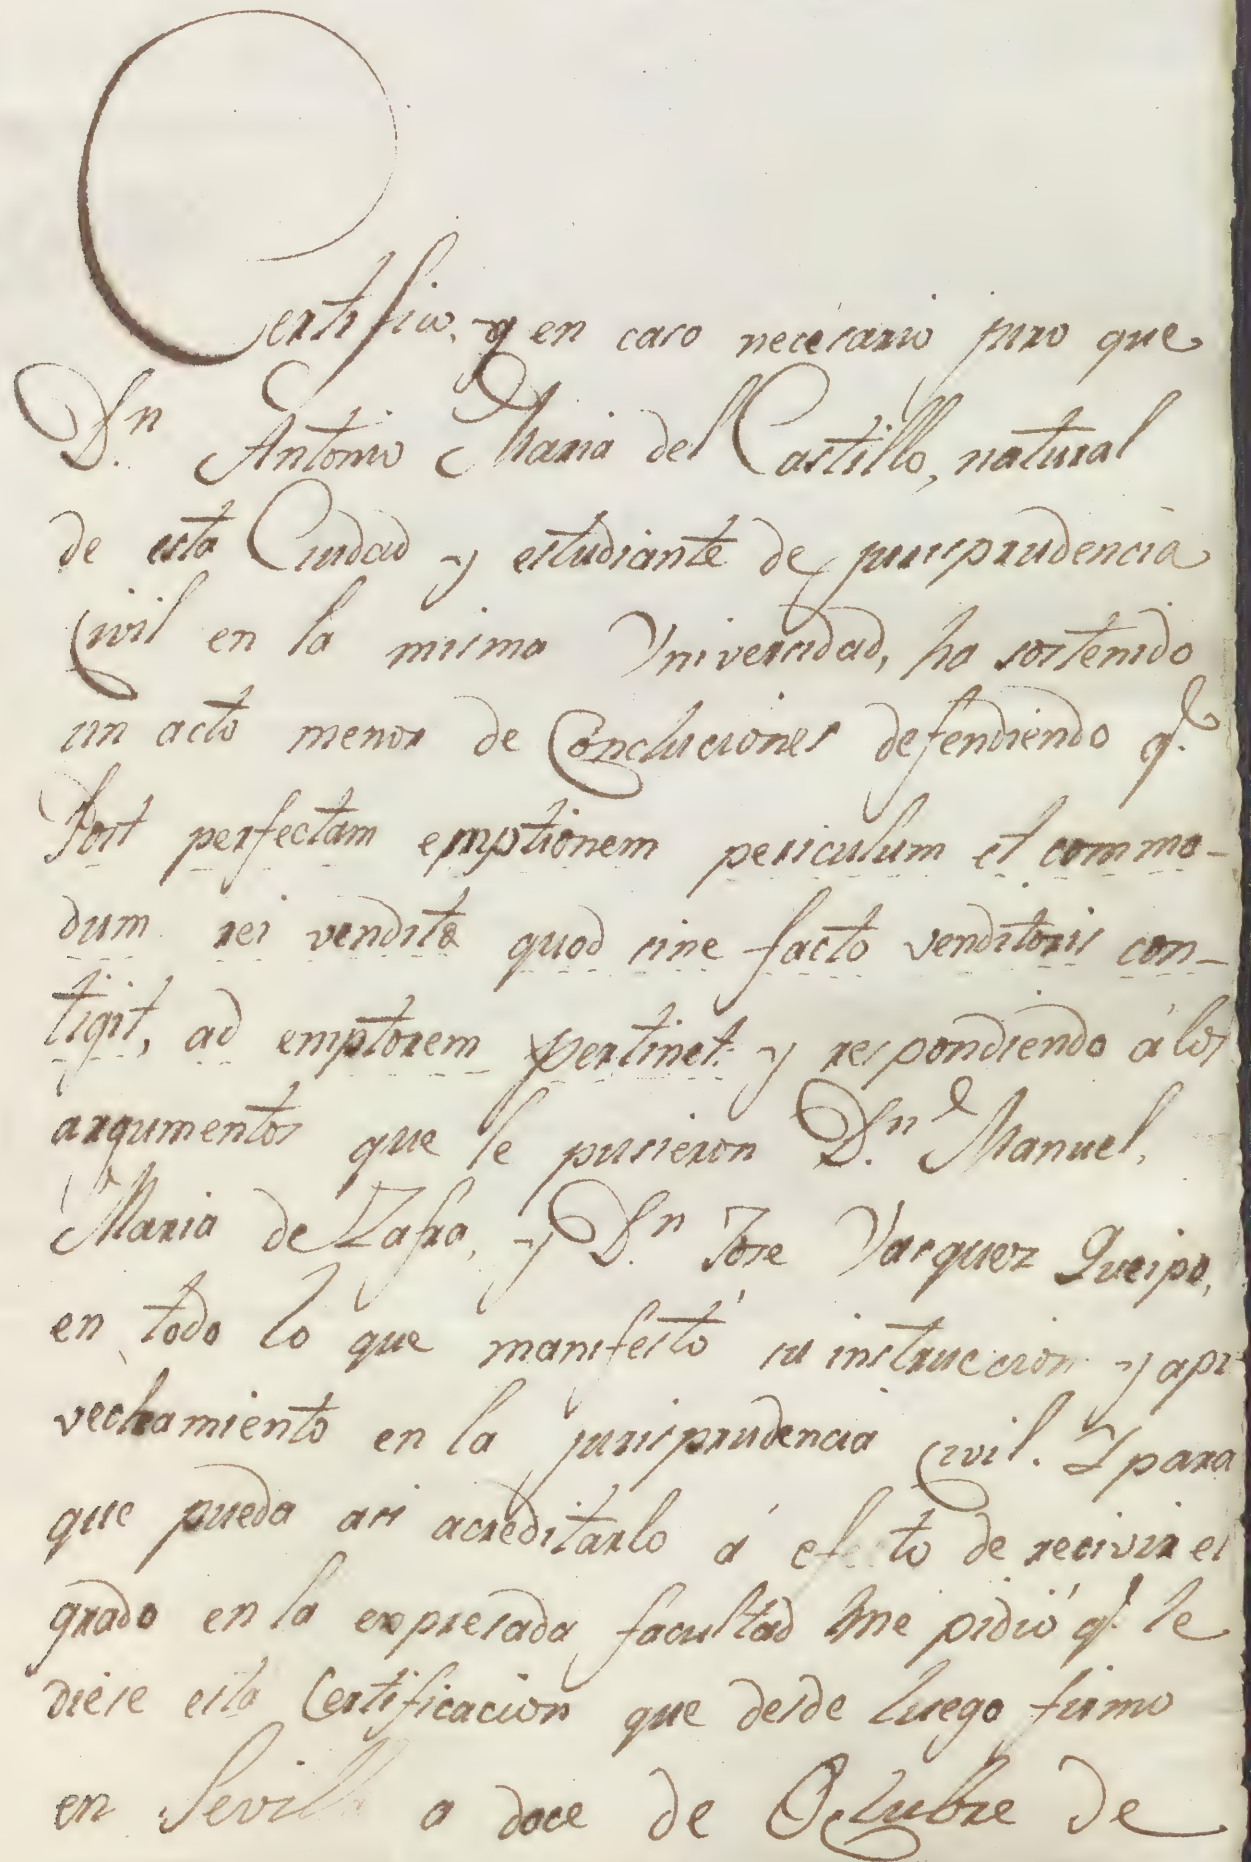 Certifico, y en caso necesario juro que
Dn. Antonio Maria del Castillo, natural
de esta Ciudad y estudiante de jurisprudencia
Civil en la misma Vniversidad, ha sostenido
un acto menor de Concluciones defendiendo q.e
Post perfectam emptionem periculum et commo-
dum rei venditæ quod sine facto venditoris con-
tigit, ad emptorem pertinet: y respondiendo á los
argumentos que le pusieron Dn. Manuel,
Maria de Zafra, y Dn. Jose Vasquez Queipo,
en todo lo que manifestó su instruccion y apr
vechamiento en la jurisprudencia Civil. Y para
que pueda asi acreditarlo á efecto de recivir el
grado en la expresada facultad me pidió q.e le
diese esta Certificacion que desde luego firmo
en Sevilla a doce de Octubre de